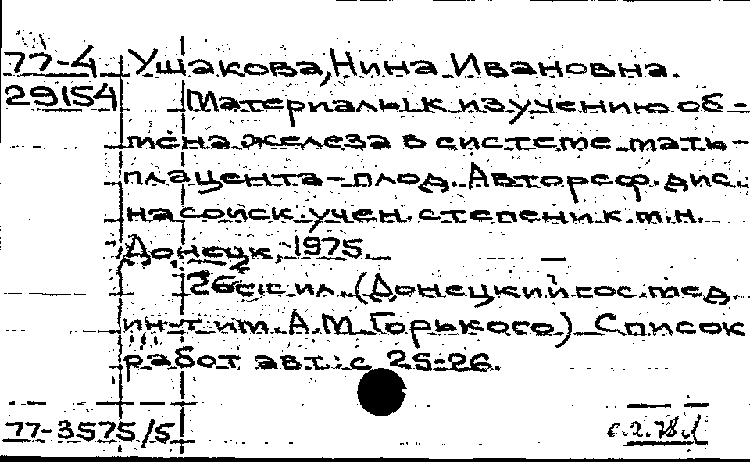 77-4 Ушакова, Нина Ивановна.
29154 Материалы к изучению об-
мена железа в системе мать-
плацента-плод. Автореф. дис.
на соиск. учен. степени к.м.н.
Донецк, 1975.
26с. с ил. (Донецкий гос. мед.
ин-т им. А.М. Горького) Список
работ авт.: с 25-26.
77-3575/5